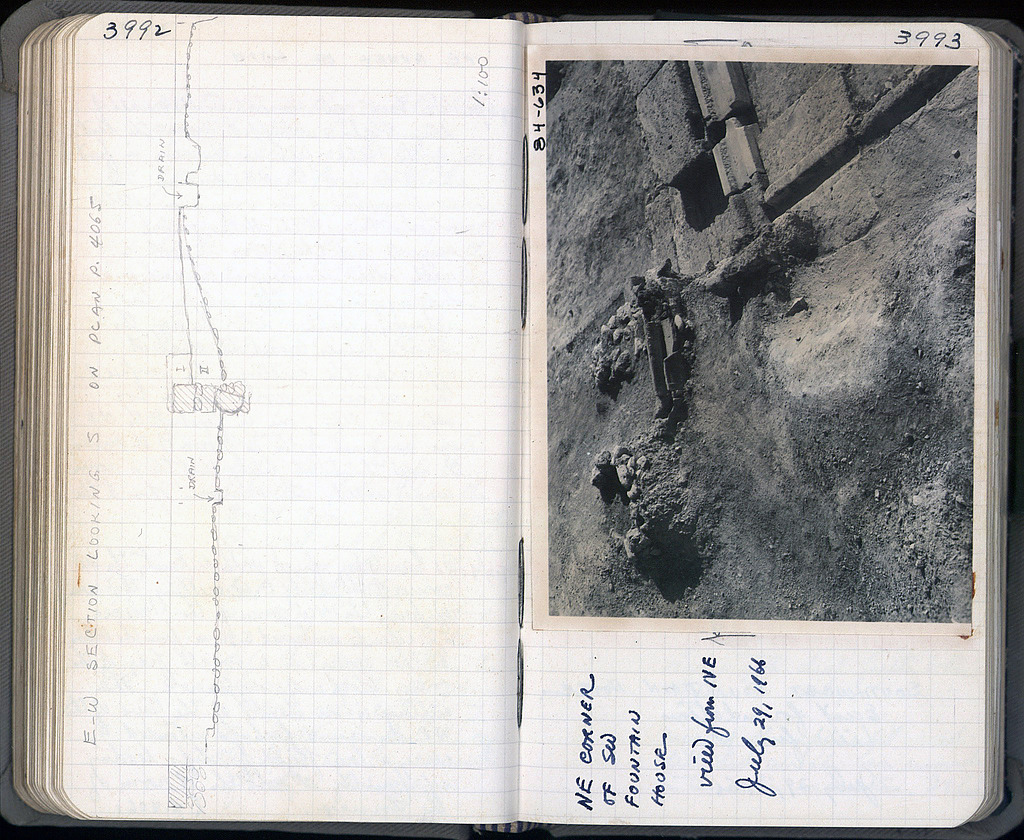 3992
E-W SECTION LOOKING S ON PLAN P. 4065
DRAIN
I
II
DRAIN
1:100
3993
84-634
NE CORNER
OF SW
FOUNTAIN
HOUSE
view from NE
July 29, 1966